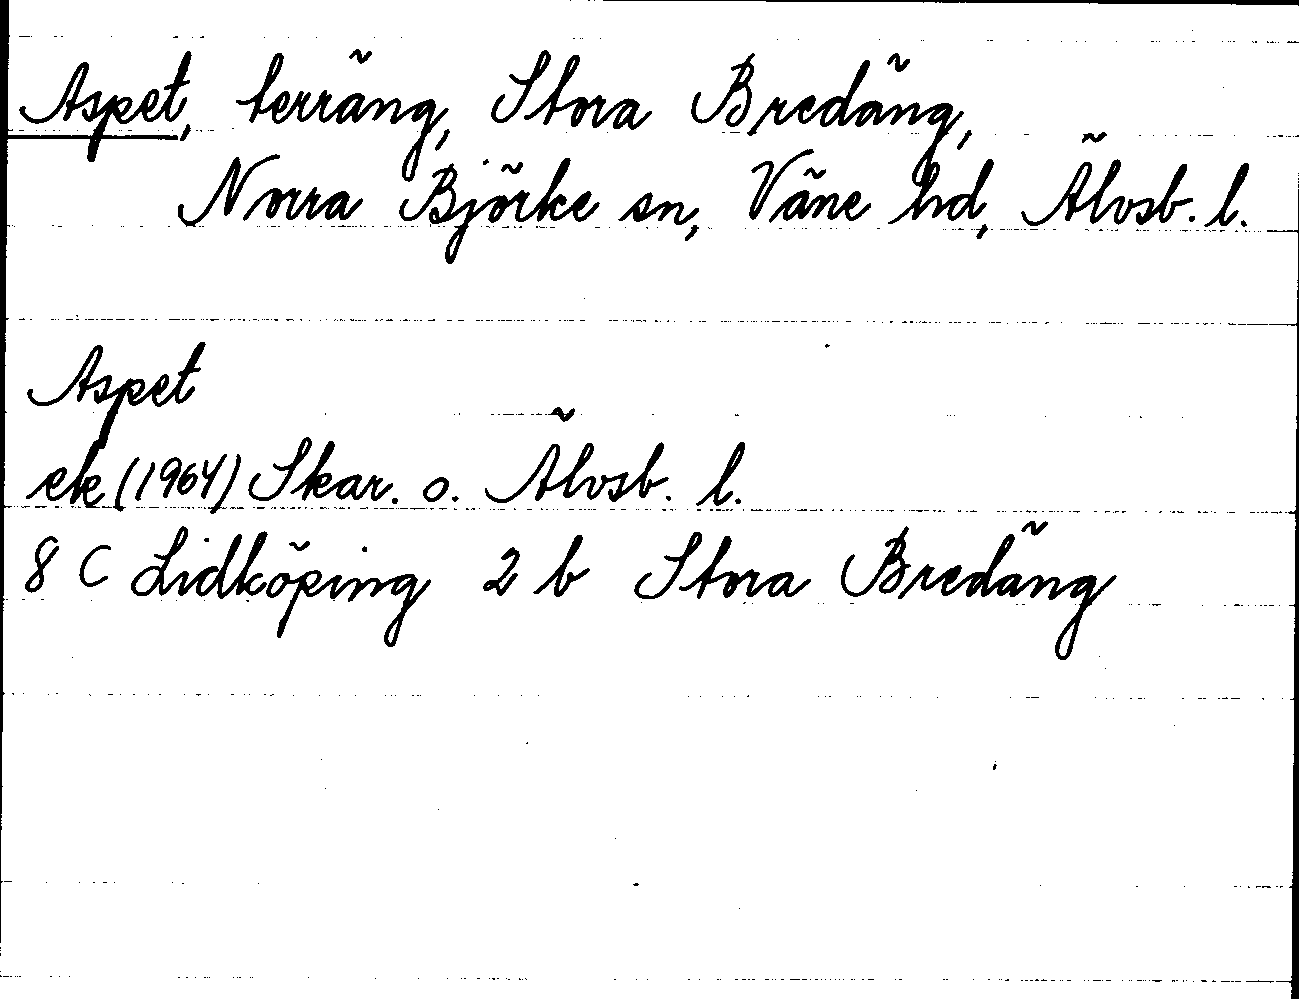 Aspet, terräng, Stora Bredäng,
Norra Björke sn, Väne hd, Älvsb. l.
Aspet
ek (1964) Skar. o. Älvsb. l.
8 C Lidköping 2 b Stora Bredäng